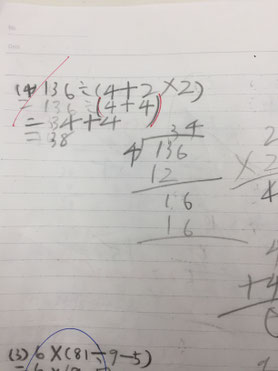 (4) 136÷(4+2×2)
=136÷(4+4)
=34+4
=38
34
4)136
12
16
16
2
×2
4
4
+4
(3) 6×(81÷9-5)